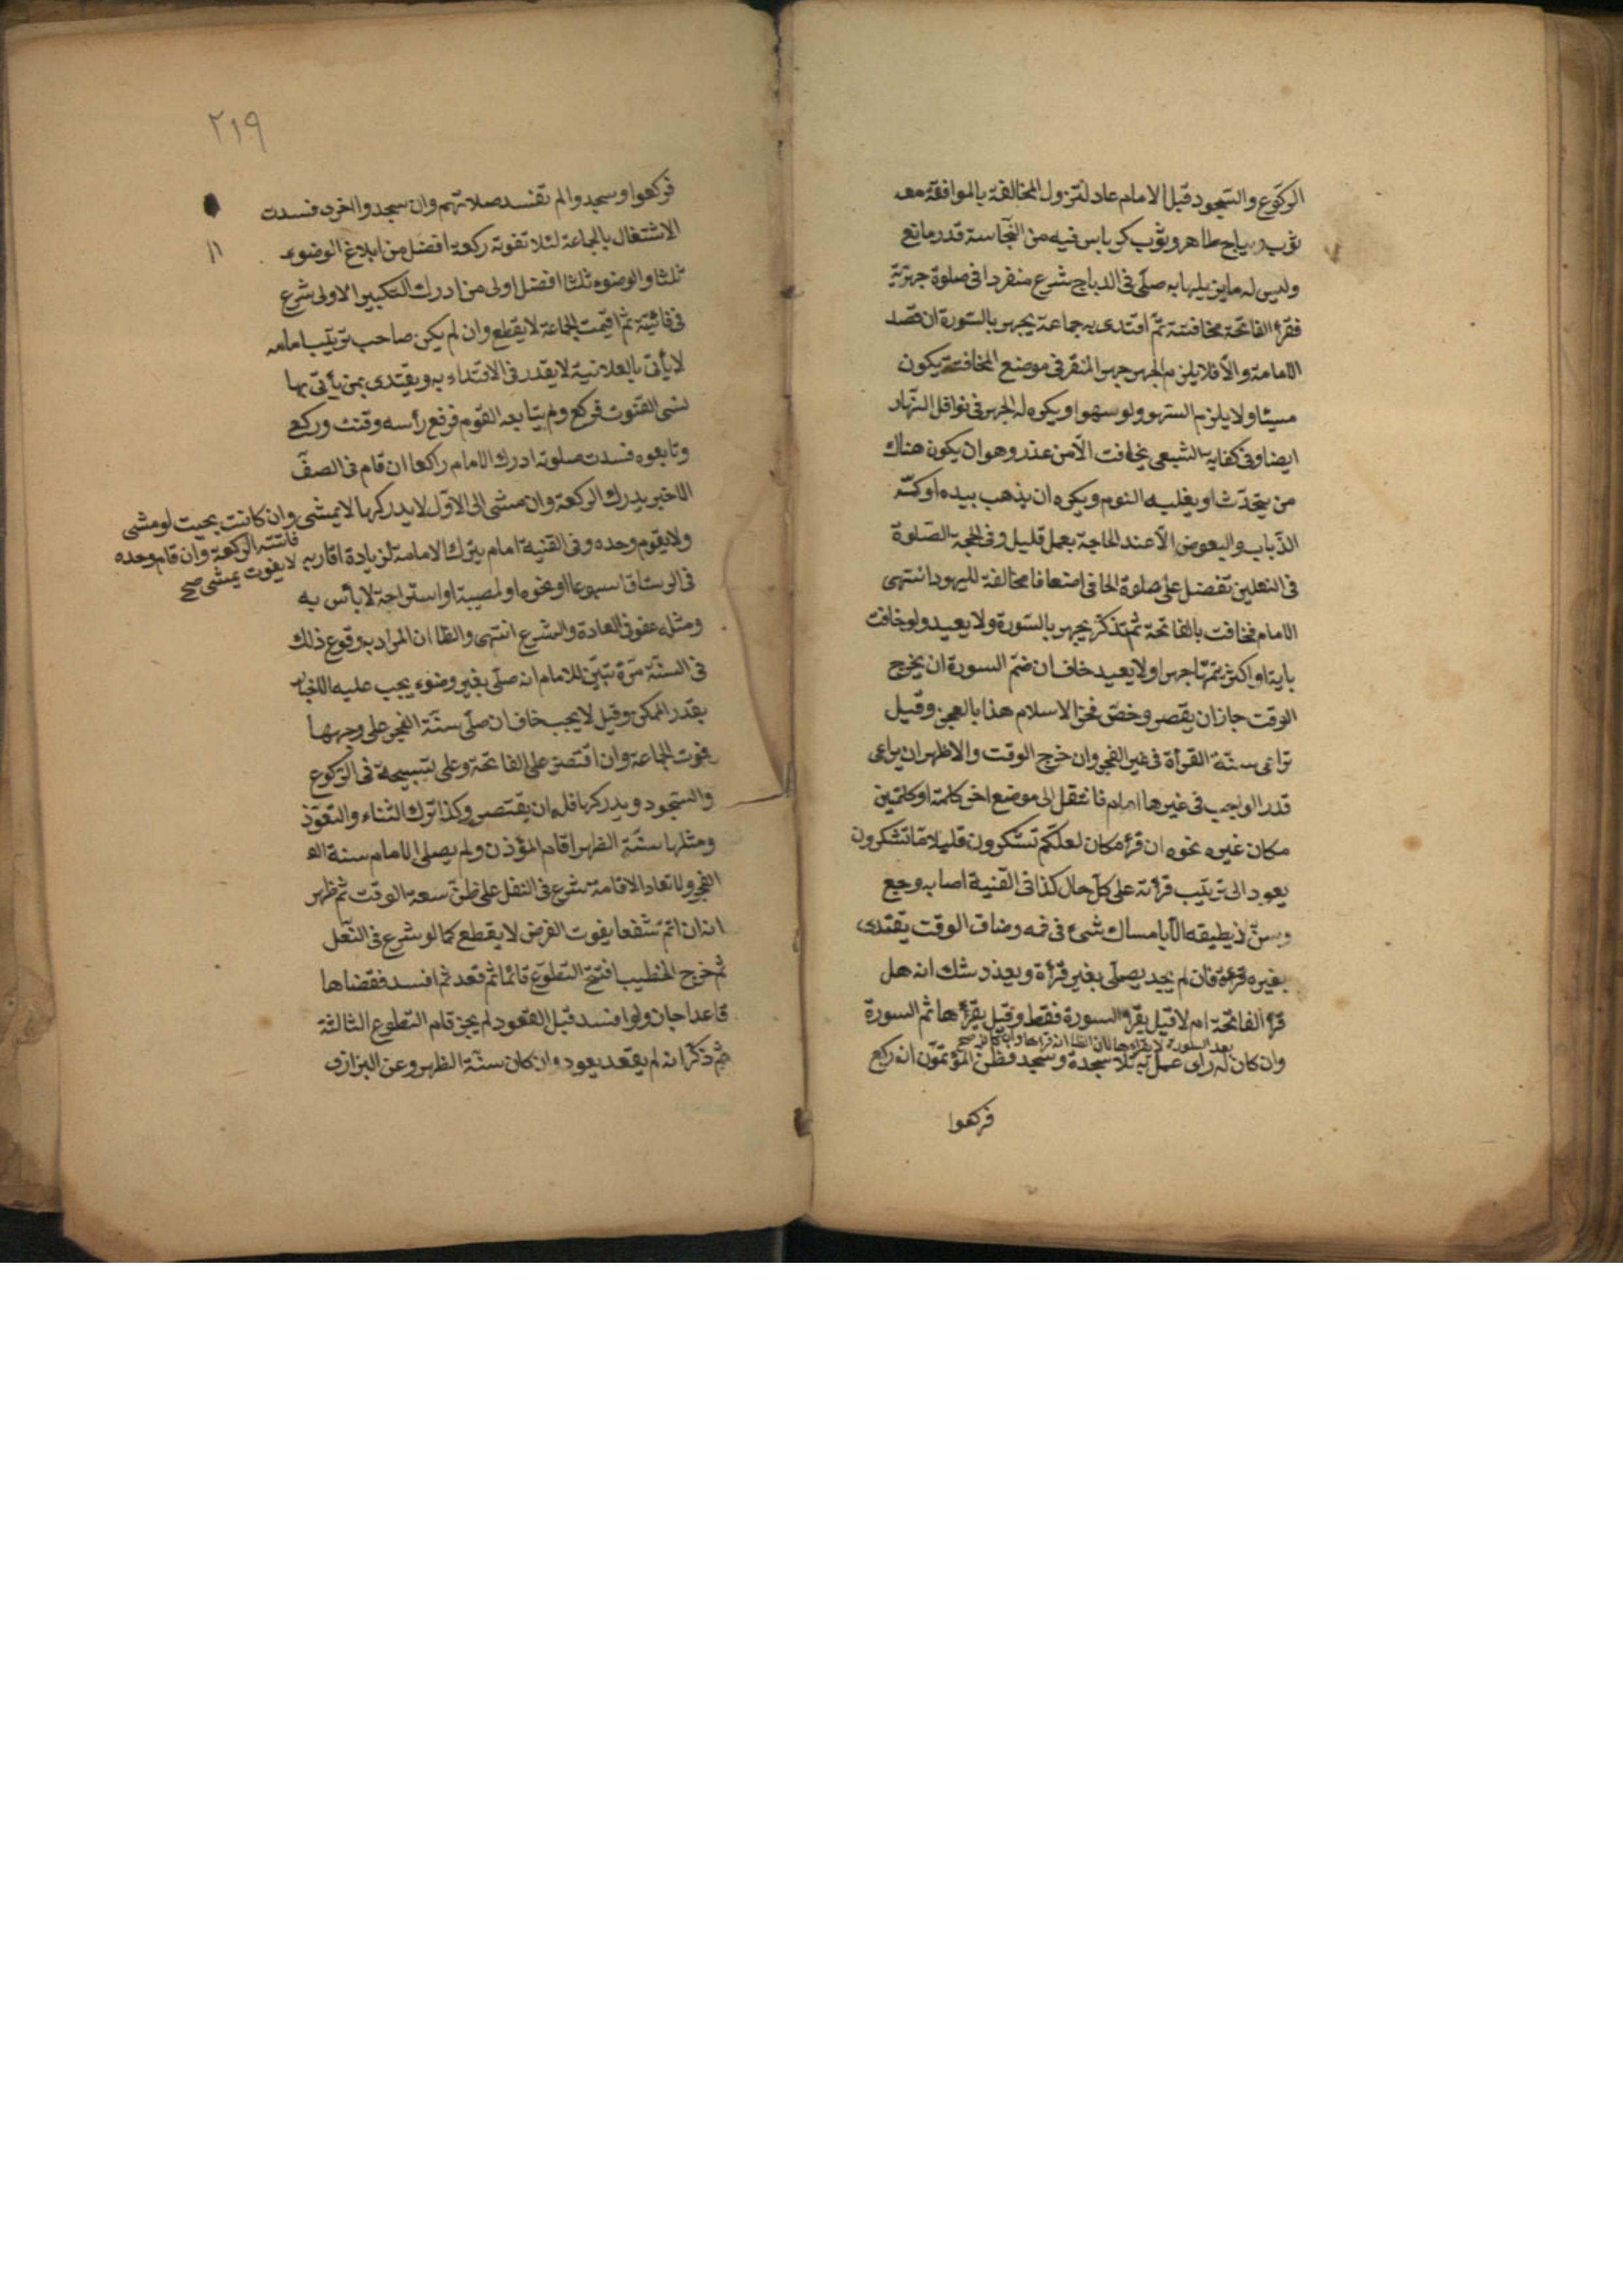 الركوع والسجود قبل الامام عاد لتزول المخالفة بالموافقة معه
ثوب ديباج طاهر وثوب كرباس فيه من النجاسة قدر مانع
وليس له ما يزيلها به صلى في الديباج شرع منفردا في صلوة جهرية
فقرأ الفاتحة مخافتة ثم اقتدى به جماعة يجهر بالسورة ان قصد
الامامة والا فلا يلزمه الجهر جهر المنفرد في موضع المخافتة يكون
مسيئا ولا يلزمه السهو ولو سهوا ويكره له الجهر في نوافل النهار
ايضا وفي كفاية الشعبي يخافت الا من عذر وهو ان يكون هناك
من يتحدث او يغلبه النوم ويكره ان يذهب بيده او كمه
الذباب والبعوض الا عند الحاجة بعمل قليل وفي الحجة الصلوة
في النعلين تفضل على صلوة الحافي اضعافا مخالفة لليهود انتهى
الامام فخافت بالفاتحة ثم تذكر يجهر بالسورة ولا يعيد ولو خافت
باية او اكثر يتمها جهرا ولا يعيد خاف ان ضم السورة ان يخرج
الوقت جاز ان يقصر وخص فخر الاسلام هذا بالعجز وقيل
تراعى سنة القرأة في غير الفجر وان خرج الوقت والاظهر ان يراعى
قدر الواجب في غيرها امام فانتقل الى موضع اخر كلمة او كلمتين
مكان غيره نحوه ان قرأ مكان لعلكم تشكرون قليلا ما تشكرون
يعود الى ترتيب قرأته على كل حال كذا في القنية اصابه وجع
وسن لا يطيقه الا بامساك شئ في فمه وضاق الوقت يقتدى
بغيره فان لم يجد يصلى بغير قرأة ويعذر شك انه هل
قرأ الفاتحة ام لا قيل يقرأ السورة فقط وقيل يقرأها ثم السورة
بعد السورة لا يقرأها لان الظا انه قرأها صح
وان كان له راى عمل به تلا سجدة وسجد وظن المؤتمون انه ركع
فركعوا
٢١٩
فركعوا وسجدوا لم تفسد صلاتهم وان سجدوا اخرى فسدت
١١
الاشتغال بالجماعة لئلا تفوته ركعة افضل من ابلاغ الوضوء
ثلثا والوضوء ثلثا افضل اولى من ادرك التكبير الاولى شرع
في فائتة ثم اقيمت الجماعة لا يقطع وان لم يكن صاحب ترتيب امامه
لا يأتي بالعلانية لا يقدر في الاقتداء به ويقتدى بمن يأتي بها
نسى القنوت فركع ولم يتابعه القوم فرفع رأسه وقنت وركع
وتابعوه فسدت صلوته ادرك الامام راكعا ان قام في الصف
الاخير يدرك الركعة وان مشى الى الاول لا يدركها لا يمشى وان كانت بحيث لو مشى
فاتته الركعة وان قام وحده
لا يفوت يمشى صح
ولا يقوم وحده وفي القنية امام يترك الامامة لزيادة اقاربه
في الرستاق اسبوعا او نحوه او لمصيبة او استراحة لا بأس به
ومثله عفو في العادة والشرع انتهى والظا ان المراد بوقوع ذلك
في السنة مرة تبين للامام انه صلى بغير وضوء يجب عليه الاخبار
بقدر الممكن وقيل لا يجب خاف ان صلى سنة الفجر على وجهها
بفوت الجماعة وان اقتصر على الفاتحة وعلى تسبيحة في الركوع
والسجود ويدركها فله ان يقتصر وكذا ترك الثناء والتعوذ
ومثلها سنة الظهر اقام المؤذن ولم يصلى الامام سنة الـ
الفجر ولا تعاد الاقامة شرع في النفل على ظن سعة الوقت ثم ظهر
انه ان اتم شفعا يفوت الفرض لا يقطع كما لو شرع في النفل
ثم خرج الخطيب افتتح التطوع قائما ثم قعد ثم افسد فقضاها
قاعدا جاز ولو افسد قبل القعود لم يجز قام التطوع الثالثة
ثم ذكر انه لم يقعد يعود وان كان سنة الظهر وعن البزازى